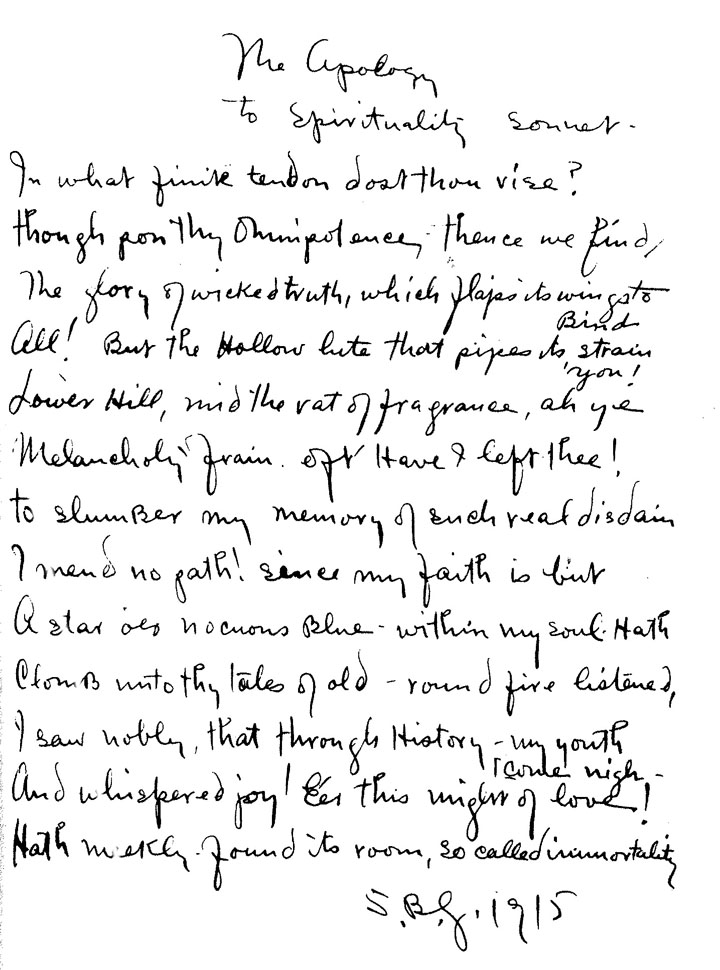 The Apology
to Spirituality Sonnet -
In what finite tendon dost thou rise?
though pon Thy Omnipotence, thence we find,
The glory of wicked truth, which flaps its wings to
Bind
All! But the Hollow lute that pipes its strain
you!
Lower Hill, mid the vat of fragrance, ah ye
Melancholy frain. oft Have I left thee!
to slumBer my memory of such real disdain
I mend no path! since my faith is but
A star nocuous Blue - within my soul. Hath
ClomB unto thy tales of old - round fire listened,
I saw nobly, that through History - my youth
I come nigh -
And whispered joy! Ees this might of love!
Hath meekly found its room, so called immortality
S.B.G. 1915